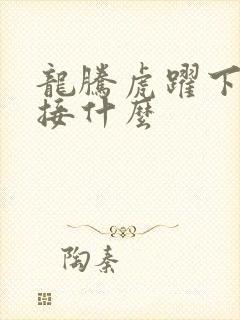 龍騰虎躍下
接什麼
陶秦